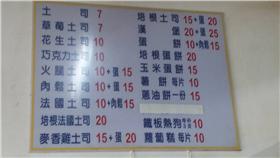 土司 7
草莓土司 7
花生土司 10
巧克力土司 10
火腿土司 10+蛋 15
肉鬆土司 10+蛋 15
法國土司 10+肉鬆 15
培根法國土司 20
麥香雞土司 15+蛋 20
培根土司 15+蛋 20
漢堡 20+蛋 25
蛋餅 10+肉鬆 15
培根蛋餅 20
玉米蛋餅 15
薯餅 每片 10
蔥油餅 一份 15
鐵板熱狗 10
蘿蔔糕 每片 10